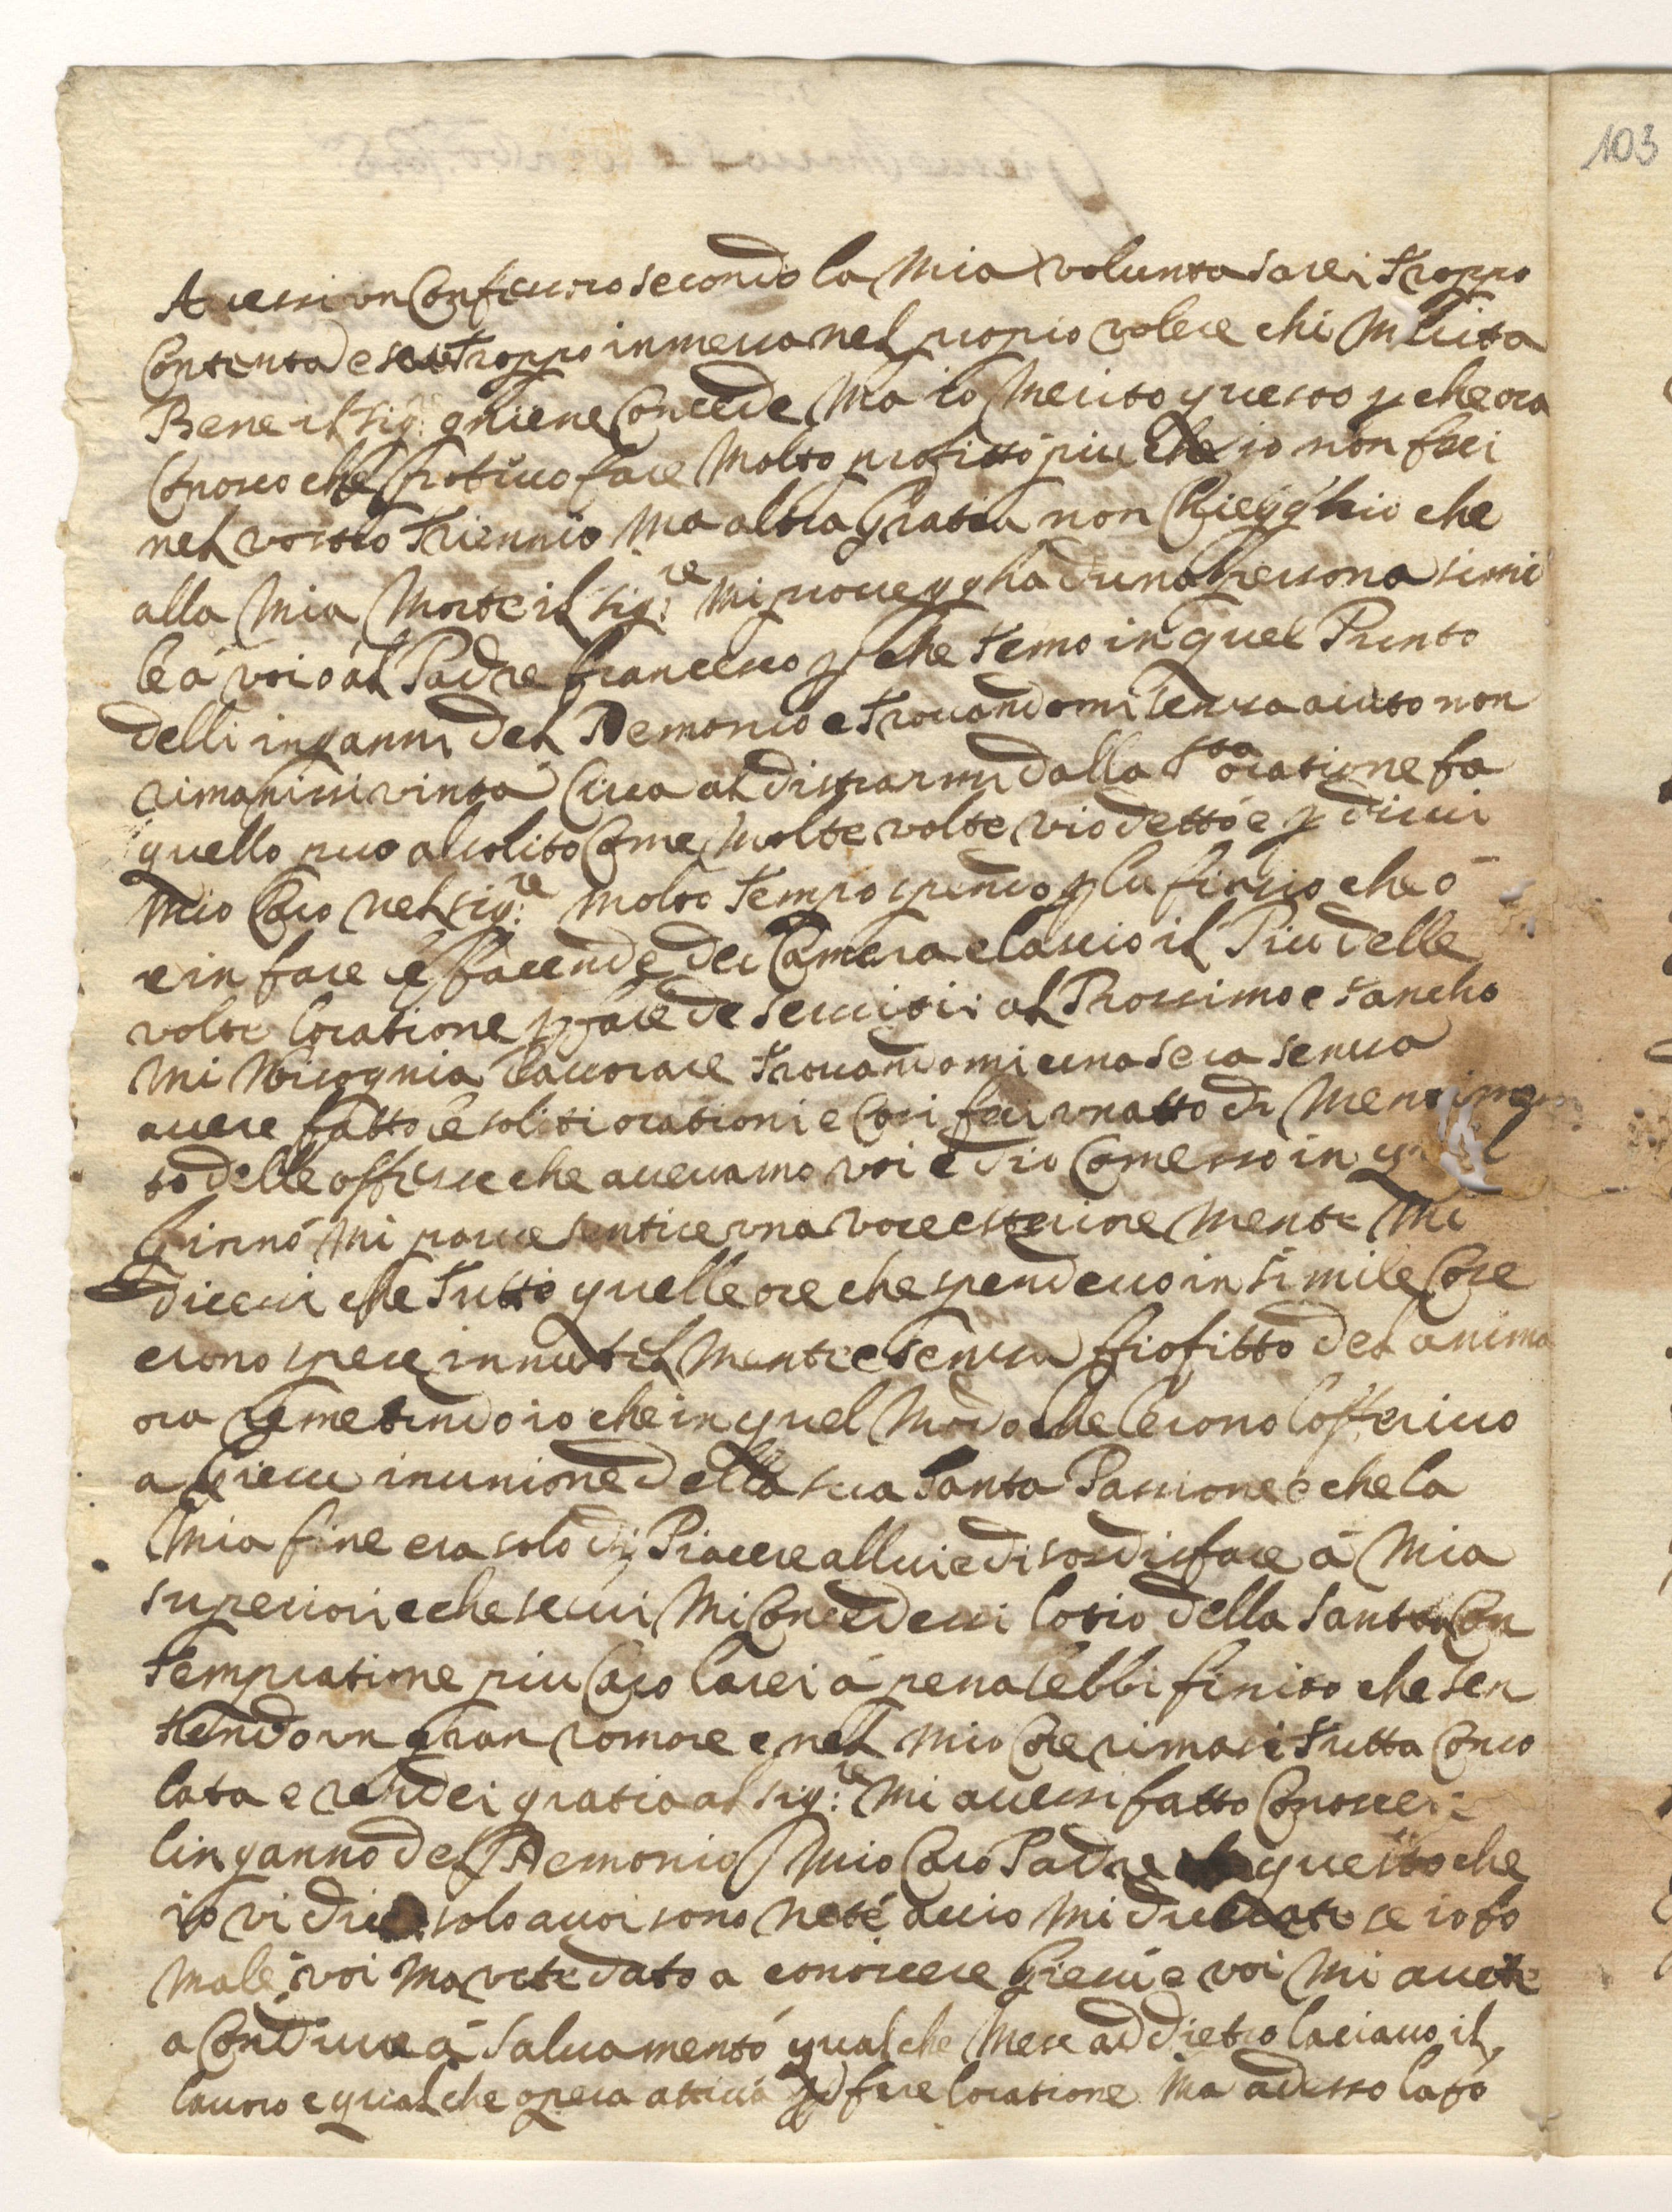 103
Avessi un Confessoro secondo la Mia volunta sarei troppo
Contenta e sarei troppo inmersa nel propio volere chi Merita
Bene il sig: gniene Concede Ma io Merito questo p che ora
Conosco che potevo fare Molto profitto piu che io non feci
nel vostro triennio Ma altra Gratia non Chiegghio che
alla Mia Morte il sig:re Mi provegga duna Persona simi
le á voi o al Padre francesco p che temo in quel Punto
delli inganni del Demonio e trovandomi senza aiuto non
rimanissi vinta Circa al distrarmi dalla sta oratione fa
quello puo al solito Come Molte volte vio detto e p dirvi
Mio Caro nel sig:re Molto tempo spendo p lufitio che ó
e in fare le facende dei Camera e lascio il Piu delle
volte loratione p fare de servitii al Prossimo e tancho
Mi bisognia lavorare trovandomi una sera senza
avere fatto le soliti orationi e Cosi feci unatto di
so delle offese che avevamo voi e dio Comesso in
Giorno Mi parve sentire una voce esteriore Mente Mi
dicessi che tutto quelle ore che spendevo in simile Cose
erono spese innutil Mente e senza profitto del anima
ora remetendo io che in quel Modo che lerono lofferivo
a Giesu inunione della sua Santa Passione e che la
Mia fine era solo di Piacere allui e di sodisfare á Mia
superiori e che se lui Mi Concedessi lotio della Santa Con
templatione piu Caro larei á pena lebbi finito che sen
tendo un gran romore e nel Mio Core rimasi tutta Conso
lata e rendei gratia al sig:re Mi avessi fatto Conoscere
linganno del Demonio Mio Caro Padre questo che
io vi dico solo avoi sono nete accio Mi se io fo
Male voi Mavete dato a conoscere Giesu e voi Mi avete
a Condurre á Salvamento qualche Mese addietro lasciavo il
lavoro e qualche opera attiva p fare loratione Ma adesso lafo